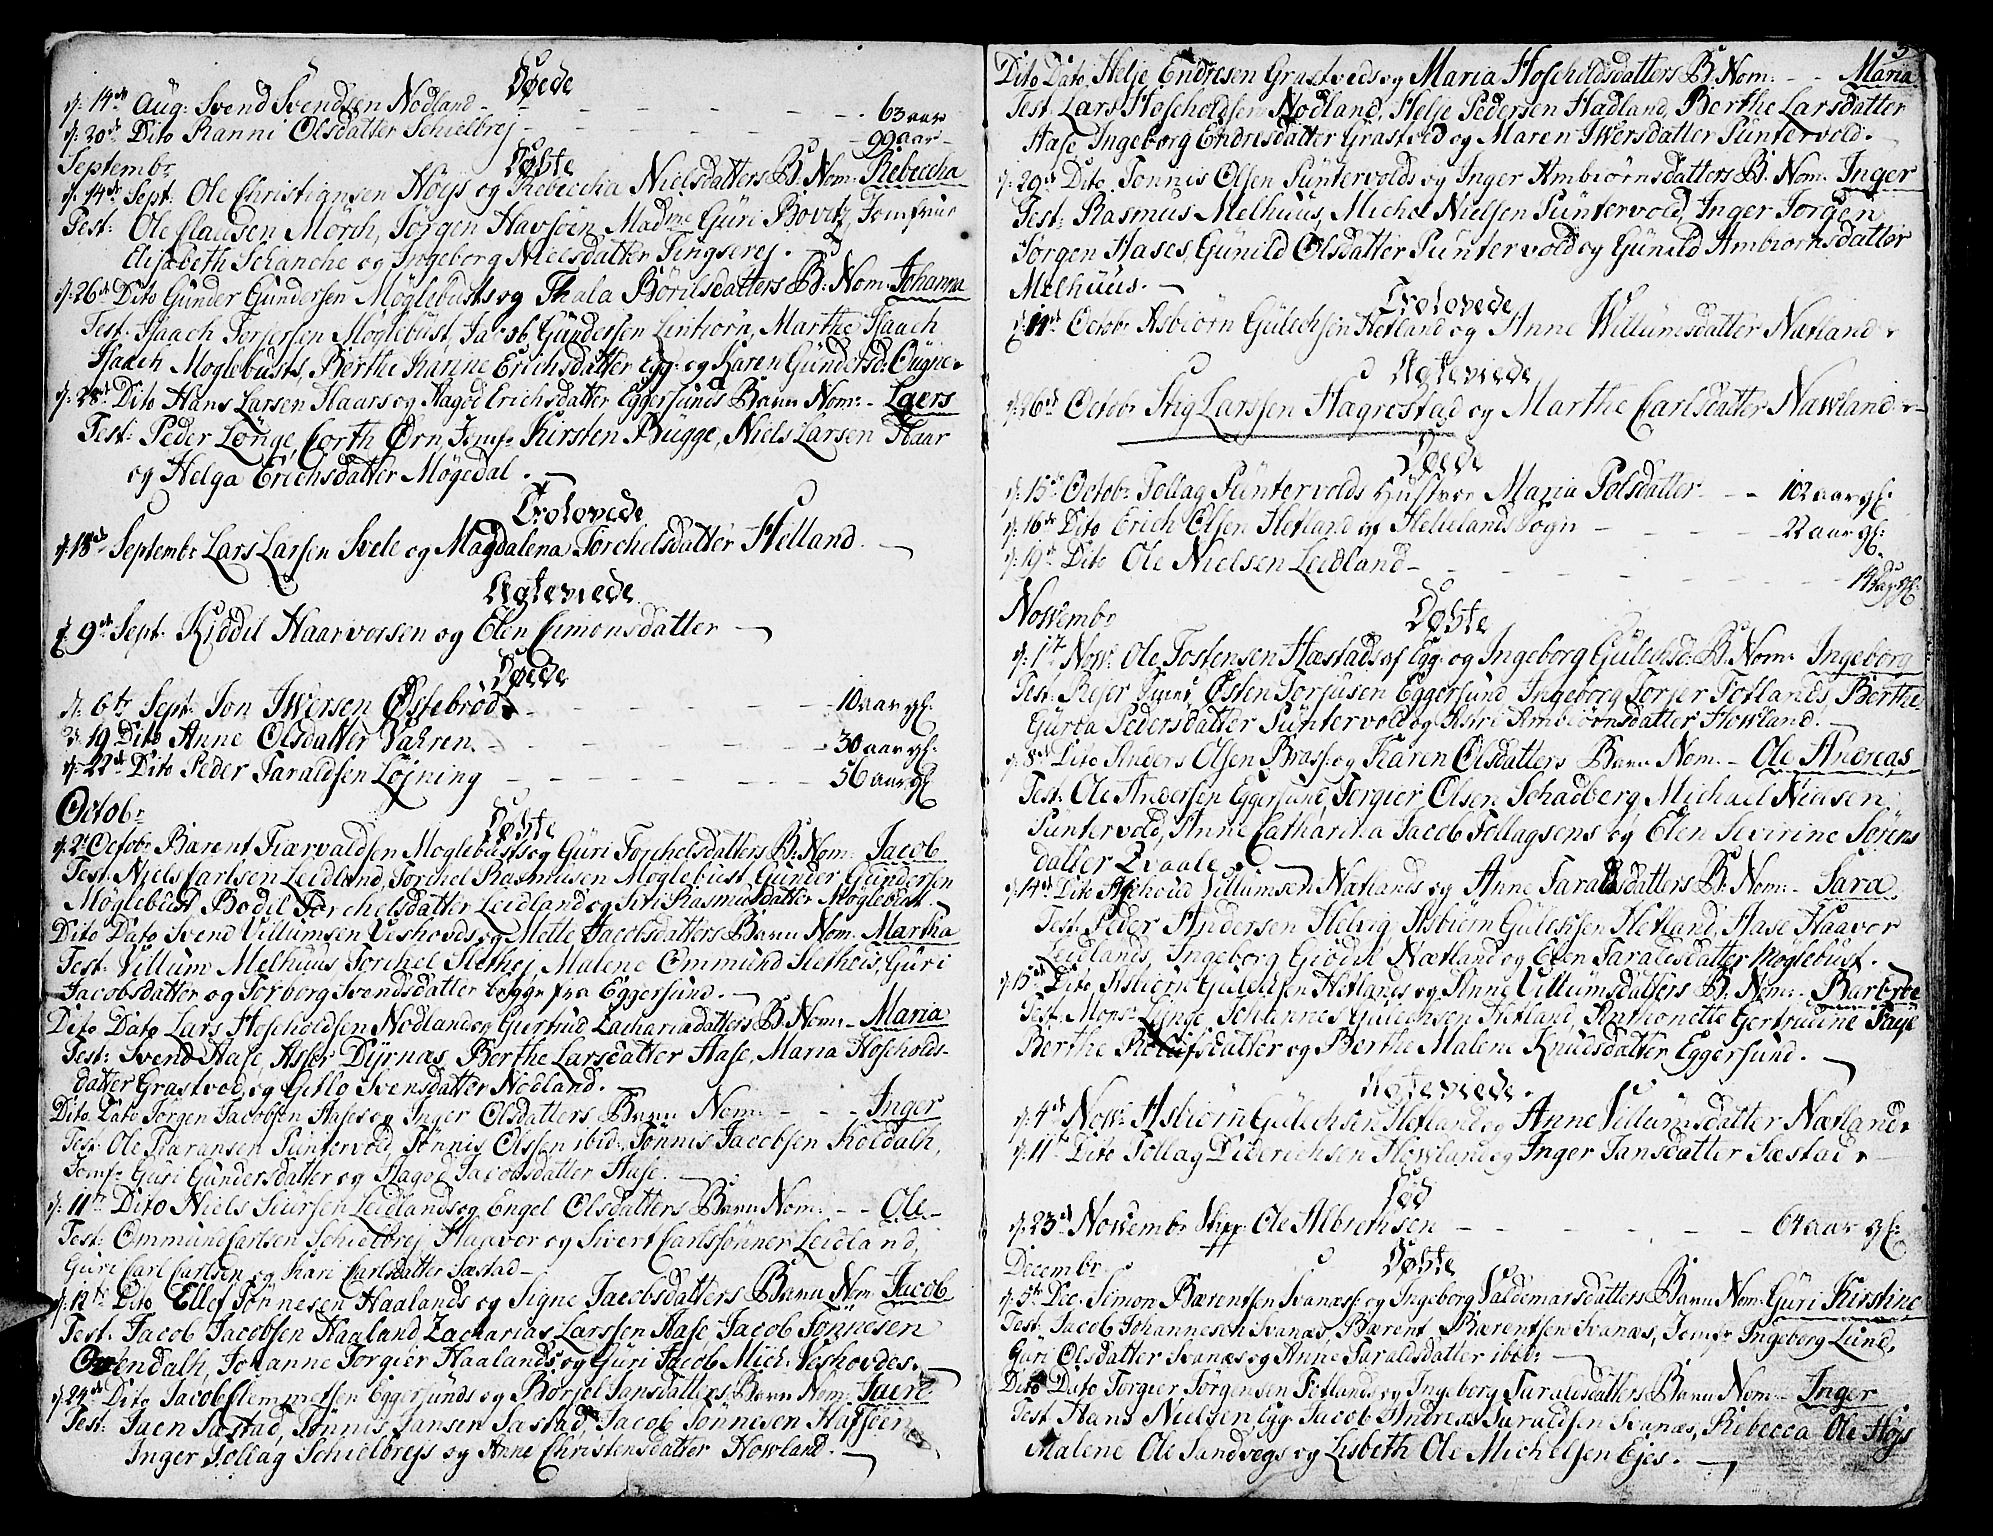 Døede
d: 14de Aug: Svend Svendsen Nodland - - - - - 63 aar
d: 20de Dito Ranni Olsdatter Schielbrej - - - - 99 aar -
Septembr Døbte
d: 14de Sept: Ole Christiansen Høys og Rebeccha Nielsdatters B: Nom: Rebeccha
Test: Ole Clausen Mørch, Jørgen Havsøen Madme Güri Bovitz, Jomfrue
Elisabeth Schanche og Ingeborg Nielsdatter Tingserej.
d: 26de Dito Gunder Gundersen Møglebusts og Thala Börilsdatters B: Nom: Johanna
Test: Isaach Torjersen Møglebust, Jacob Gundersen Marthe Isaach
Isaach Moglebusts, Berthe Karine Erichsdatter Egg: og Karen Gündersd:
d: 28de Dito Hans Larsen Haars og Magod Erichsdatter Eggersunds Barn Nom: - Laers
Test: Peder Lønge, Corth Ørn, Jomfr Kirsten Bugge, Niels Larsen Haar
og Helga Erichsdatter Møgedal.
Trolovede
d: 18de Septembr Lars Larsen Svele og Magdalena Torchelsdatter Helland.
Ægteviede
d: 9de Sept. Kiddil Haarvorsen og Elen Simonsdatter
Døede
d. 6te Sept: Jon Iwersen Østebrød - - - - 10 aar gl:
d. 19 Dito Anne Olsdatter Vahren - - - - 30 aar gl:
d. 22de Dito Peder Taraldsen Løjning - - - - 56 aar gl:
Octobr Døbte
d. 2de Octobr Bærent Tiærvaldsen Moglebusts og Güri Torchelsdatters B: Nom: Jacob
Test: Niels Carlsen Leidland, Torchel Rasmusen Moglebust Gunder Gundersen
Møglebust Bodil Torchelsdatter Leidland og Siri Rasmusdatter Møglebust.
Dito Dato Svend Villumsen Veshovds og Mette Jacobsdatters Barn Nom: Martha
Test: Villum Melhuus Torchel Slethej, Malene Ommund Slethois, Güri
Jacobsdatter og Torborg Svendsdatter begge fra Eggersund.
Dito Dato Lars Hoscholdsen Nodland og Gurtrud Zachariadatters B: Nom: - Maria
Test: Svend Hase, Asser Dyrnæs, Berthe Larsdatter Hase, Maria Hoscholds-
datter Grastved, og Svensdatter Nodland.
Dito Dato Jørgen Jacobsen Hases og Inger Olsdatters Barn Nom: - - - Inger
Test: Ole Puntervold, Tønnis Olssen ibid: Tønnis Jacobsen Koldalh,
Jomfr: Guri Gundersdatter og Magod Jacobsdatter Hase.
d: 11te Dito Niels Siursen Leidlands og Engel Olsdatters Barn Nom: - - Ole -
Test: Ommund Carlsen Schielbrej Haavor og Sivert Carlssønner Leidland,
Guri Carl Carlsen og Kari Carlsdatter Sæstad -
d. 12te Dito Ellef Tønnesen Haalands og Signe Jacobsdatters Barn Nom: Jacob
Test: Jacob Jacobsen Haaland Zacharias Larssen Hase Jacob Tønnesen
Johanne Torgier Haalands og Guri Jacob Mich: Veshovdes.
d: 24de Dito Jacob Clemmetsen Eggersunds og Børgel Jansdatters Barn Nom:
Test: Juen Sæstad, Tønnis Jansen Sæstad, Jacob Tønnisen Hafsøen
Inger Tollag Schielbrejs og Anne Christensdatter Howland.
Dito Dato Helje Endresen Grastveds og Maria Hoscholdsdatters B: Nom: - - Maria
Test. Lars Hoscholdsen Nodland, Helje Pedersen Hadland, Berthe Larsdatter
Hase Ingeborg Endresdatter Grastved og Maren Iwersdatter Puntervold.
d. 29de Dito Tonnis Olsen Puntervolds og Inger Ambiørnsdatters B: Nom: Inger
Test: Rasmus Melhuus, Michel Nielsen Puntervold, Inger Jorgen
Jorgen Hases, Gunild Olsdatter Puntervold og Gunild Ambiornsdatter
Melhuus.
Trolovede
d. 11te Octobr Asbiørn Gulechsen Hetland og Anne Willumsdatter Nætland
Ægteviede
d. 26de Octobr Stig Larssen Hægrestad og Marthe Carlsdatter Nawland
Døede
d. 15de Octobr Tollag Puntervolds Hustroe Maria Polsdatter - - 102 aar gl:
d. 16de Dito Erich Olsen Hetland af Hellelands Sogn - - - - 22 aar gl:
d. 19de Dito Ole Nielsen Leidland - - - - 14 dag gl:
Novembr Døbte
d. 1te Nov: Ole Tostensen Hæstads af Egg: og Ingeborg Gulechsd: B: Nom: Ingeborg
Test: Østen Torjusen Eggersund Ingeborg Torjer Totlands, Berthe
Gurta Pedersdatter Puntervold og Kari Ambiörnsdatter Howland.
d. 8de Dito Anders Olsen og Karen Olsdatters Barn Nom: - Ole Andreas
Test: Ole Andersen Eggersund, Torgier Olsen Schadberg Michael Nielsen
Puntervold, Anne Catharina Jacob Tollagsens og Elen Severine Sørens
datter Qvaale.
d. 14de Dito Villumsen Nætlands og Anne Taraldsdatters B: Nom: - Sara
Test: Peder Andersen Helvig Asbiørn Gulechsen Hetland, Hase Haavor
Leidlands, Ingeborg Giödel Nætland og Elen Taraldsdatter Moglebust.
d. 15de Dito Asbiørn Gulechsen Hetlands og Anne Villumsdatters B: Nom: -
Test: Monsr Lønge Johannes Gulechsen Hetland, Anthonette Gertrudine Faÿe
Berthe Roleifsdatter og Berthe Malene Knudsdatter Eggersund.
Ægteviede.
d. 4de Nov: Asbiørn Gulechsen Hetland og Anne Villumsdatter Nætland
d. 11te Dito Tollag Diderichsen Howland og Inger Jansdatter Sæstad
Død
d. 23de Novembr Skipp: Ole Albretsen - - - - 64 aar gl:
Decembr Døbte
d. 5te Dec: Simon Bærentsen Svanæs: og Ingeborg Valdemarsdatters Barn Nom: Guri Kirstine
Test: Jacob Johannesen Svanæs, Bærent Bærentsen Svanæs, Jomfr Ingeborg Lund,
Guri Olsdatter Svanæs og Anne Taraldsdatter ibid:
Dito Dato Torgier Jørgensen Totlands og Ingeborg Taraldsdatters Barn Nom: - Inger
Test Hans Nielsen Egg: Jacob Andreas Taraldsen Svanæs, Rebecca Ole Høys
Malene Ole Sandvegs og Lisbeth Ole Michelsen Ejes.